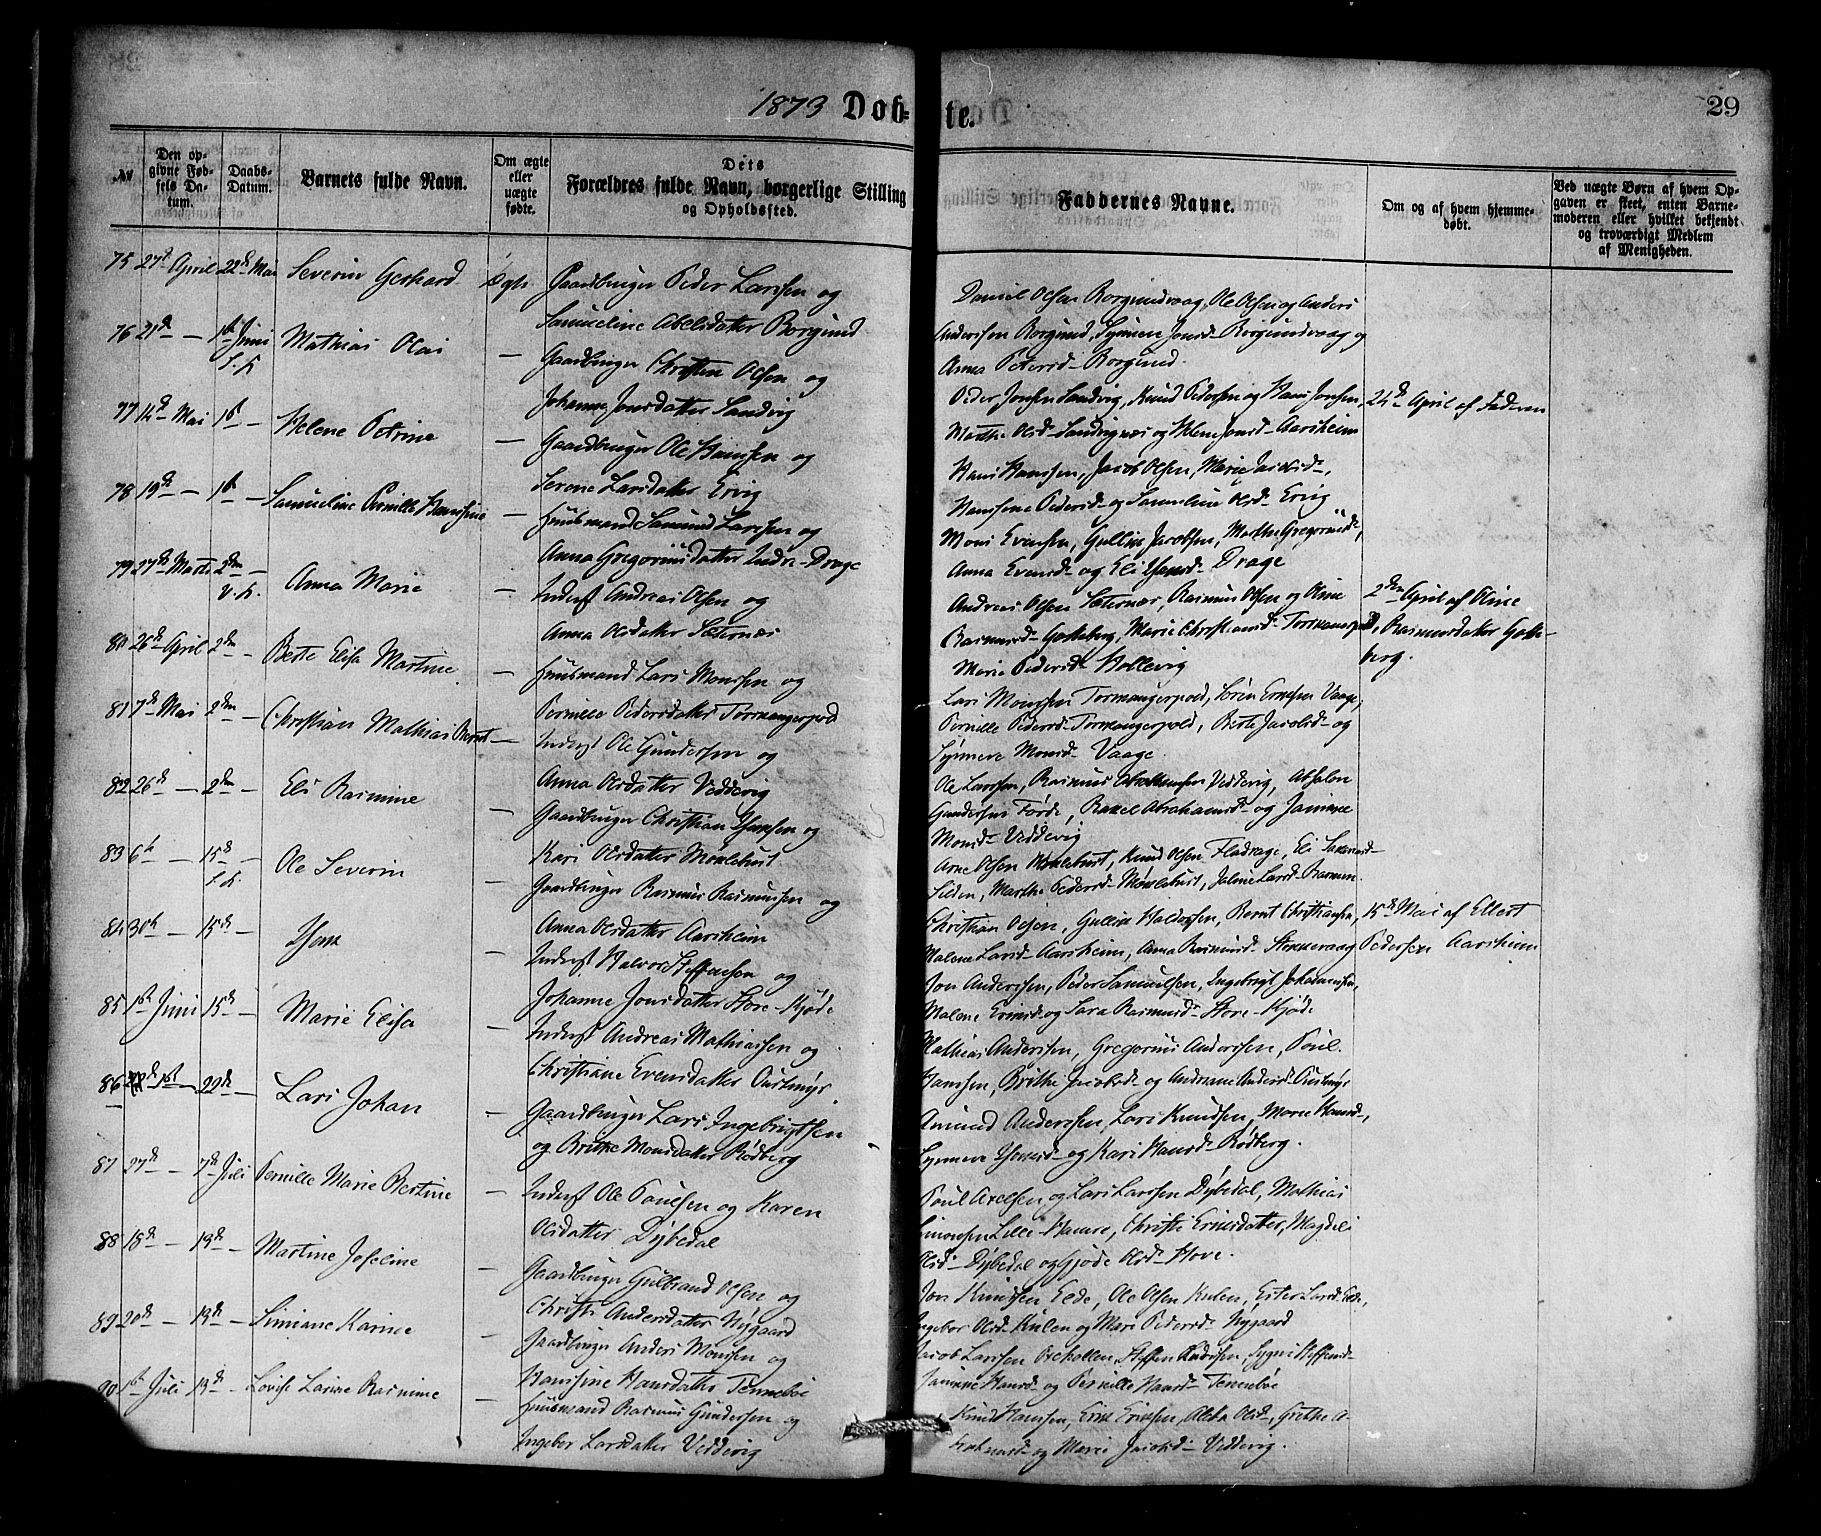 1873 Døb-te. 29
No
Den opgivne Fødsels Datum.
Daabs-Datum.
Barnets fulde Navn.
Om ægte eller uægte fødte.
Dets Forældres fulde Navn, borgerlige Stilling og Opholdssted.
Faddernes Navne.
Om og af hvem hjemmedøbt.
Ved uægte Børn af hvem Opgaven er skeet, enten Barnemoderen eller hvilket bekjendt og troværdigt Medlem af Menigheden.
75 27de April 22de Mai Severin Gerhard Ægte Gaardbruger Peder Larssen og
Samueline Abelsdatter Borgund
Daniel Olsen Borgundvaag, Ole Olsen og Anders
Anderssen Borgund, Synneve Jonsd. Borgundvaag og
Anna Petersd. Borgund.
76 21de — 1ste Juni Mathias Olai — Gaardbruger Christen Olsen og
Johanne Jonsdatter Sandvig
Peder Jonsen Sandvig, Knud Pedersen og Hans Jonsen,
Marthe Olsd. Sandvignæs og Helene Jonsd. Aarsheim
24de April af Faderen
77 14de Mai 1ste — Helene Petrine — Gaardbruger Ole Hanssen og
Serene Larsdatter Ervig
Hans Hanssen, Jacob Olsen, Marie Jacobsd.,
Hanssene Pedersd. og Samueline Olsd. Ervig
78 19de — 1ste — Samueline Pernille Hanssine — Huusmand Samund Larssen og
Anna Gregoriusdatter Indre-Drage
Mons Evensen, Gullik Jacobsen, Marthe Gregoriusd.,
Anna Evensd. og Eli Hansd. Drage
79 27de Marts 2den — Anna Marie — Inderst Andreas Olsen og
Anna Olsdatter Sæternæs
Andreas Olsen Sæternæs, Rasmus Olsen og Oline
Rasmusd. Gotteberg, Marie Christiansd. Tormangerpold,
Marie Pedersd. Hellevig
2den April af Oline
Rasmusdatter Gotteberg.
80 26de April 2den — Berte Elisa Martine — Huusmand Lars Monssen og
Pernille Pedersdatter Tormangerpold
Lars Monssen Tormangerpold, Søren Ernstsen Vaage,
Pernille Pedersd. Tormangerpold, Berte Jacobsd. og
Synneve Monsd. Vaage.
81 7de Mai 2den — Christian Mathias Bernt — Inderst Ole Gunderssen og
Anna Olsdatter Veddevig
Ole Larssen, Rasmus Abrahamsen Veddevig, Absalon
Gundersen Førde, Rakel Abrahamsd. og Janikke
Monsd. Veddevig
82 26de — 2den — Eli Rasmine — Gaardbruger Christian Hansen og
Kari Olsdatter Maalehust
Arne Olsen Maalehust, Knud Olsen Fladrage, Eli
Silden, Marthe Pedersd. Maalehust,
83 6te — 15de — Ole Severin — Gaardbruger Rasmus Rasmussen og
Anna Olsdatter Aarsheim
Christian Olsen, Gullik Haldorsen, Bernt Christiansen,
Malene Larsd. Aarsheim, Anna Rasmusd. Stokkevaag
15de Mai af Ellert
Pedersen Aarsheim
84 30te — 15de — Jens — Inderst Halvor Steffensen og
Johanne Jonsdatter Store-Kjøde
Jon Anderssen, Peder Samuelsen, Ingebrigt Johannessen,
Malene Eriksd. og Sara Rasmusd. Store-Kjøde
85 1ste Juni 15de — Marie Elisa — Inderst Andreas Mathiassen og
Christiane Evensdatter Qustmyr
Mathias Anderssen, Gregorius Anderssen, Poul
Hanssen, Brithe Jacobsd. og Andreane Andersd. Qustmyr
86 1st — 29de — Lars Johan — Gaardbruger Lars Ingebrigtsen
og Brithe Monsdatter Rødberg
Amund Anderssen, Lars Knudssen, Marie Hansd.,
Synneve Jensd. og Kari Hansd. Rødberg.
87 27de — 7de Juli Pernille Marie Bertine — Inderst Ole Poulsen og Karen
Olsdatter Dybedal
Poul Axelsen og Lars Larssen Dybedal, Mathias
Simonsen Lille-Haare, Christi Eriksdatter, Magdeli
Olsd. Dybedal og Gjøde Olsd. Hove.
88 18de — 13de — Martine Josefine — Gaardbruger Gulbrand Olsen og
Christi Andersdatter Nygaard
Jon Knudssen Eide, Ole Olsen Kulen, Ester Larsd. Eide,
Ingebor Olsd. Kulen og Mari Pedersd. Nygaard
89 20de — 13de — Simiane Karine — Gaardbruger Anders Monssen og
Hanssine Hansdatter Tennebøe
Jacob Larssen Oxehollen, Steffen Knudssen, Sygni Steffensd.
Janikke Hansd. og Pernille Hansd. Tennebøe
90 1ste Juli 13de — Lovise Larine Rasmine — Huusmand Rasmus Gunderssen og
Ingebor Larsdatter Veddevig
Knud Hanssen, Erik Erikssen, Aleta Olsd., Grethe A-
og Marie Jacobsd. Veddevig.